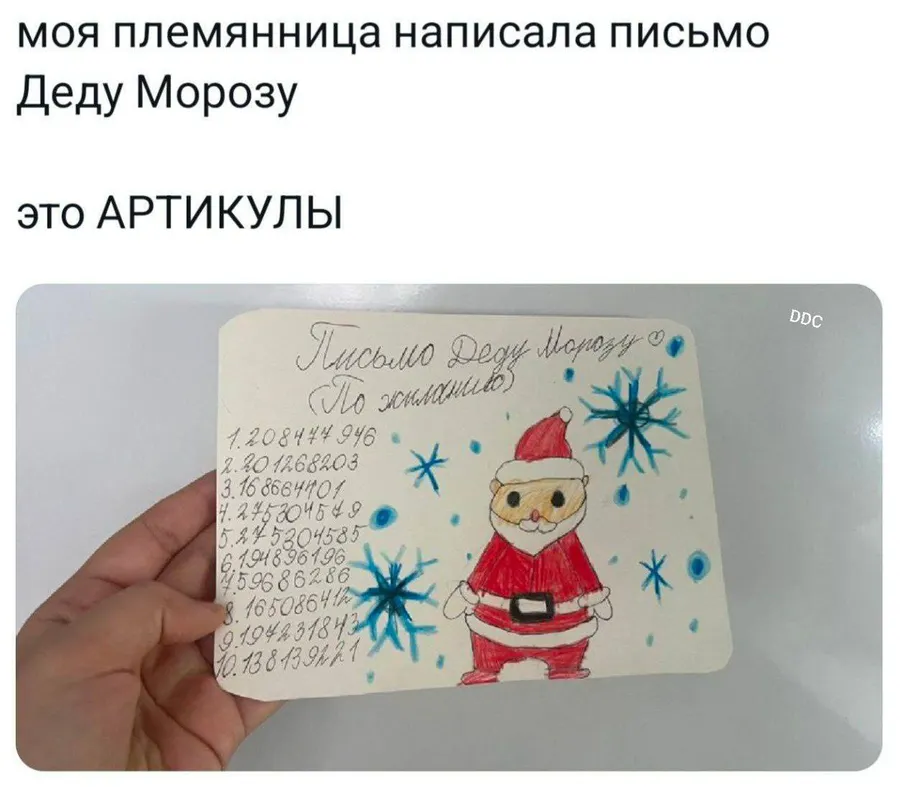 моя племянница написала письмо
Деду Морозу
это АРТИКУЛЫ
DDC
Письмо Деду Морозу
(По желанию)
1.208477946
2.201268203
3.168664701
4.275304579
5.275304585
6.194896196
7.59686286
8.165086412
9.197231843
10.138139221